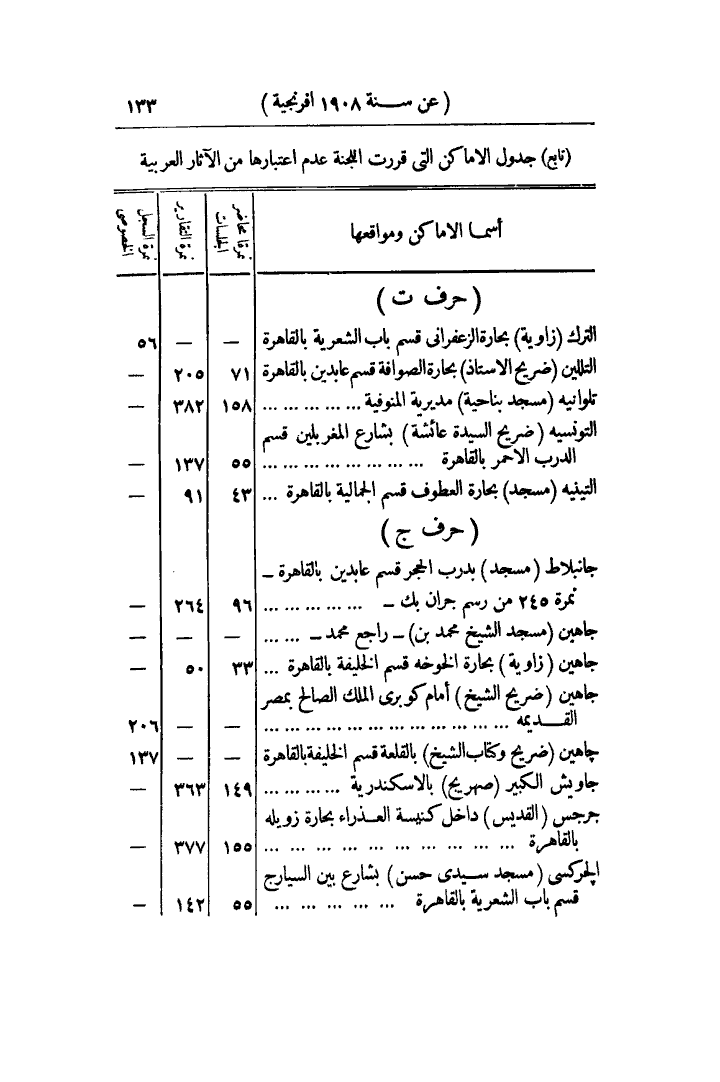 (عن سنة ١٩٠٨ افرنجية) ١٣٣
(تابع) جدول الاماكن التى قررت اللجنة عدم اعتبارها من الآثار العربية
أسما الاماكن ومواقعها | نمرة محاضر الجلسات | نمرة التقارير | نمرة السجل الخصوصى
(حرف ت)
الترك (زاوية) بحارة الزعفرانى قسم باب الشعرية بالقاهرة — — ٥٦
التللين (ضريح الاستاذ) بحارة الصوافة قسم عابدين بالقاهرة ٧١ ٢٠٥ —
تلوانيه (مسجد بناحية) مديرية المنوفية ... ... ... ... ١٥٨ ٣٨٢ —
التونسيه (ضريح السيدة عائشة) بشارع المغربلين قسم
الدرب الاحمر بالقاهرة ... ... ... ... ... ... ... ٥٥ ١٣٧ —
التينيه (مسجد) بحارة العطوف قسم الجمالية بالقاهرة ... ٤٣ ٩١ —
(حرف ج)
جانبلاط (مسجد) بدرب الحجر قسم عابدين بالقاهرة —
نمرة ٢٤٥ من رسم جران بك — ... ... ... ... ... ٩٦ ٢٦٤ —
جاهين (مسجد الشيخ محمد بن) — راجع محمد — ... ... — — —
جاهين (زاوية) بحارة الخوخه قسم الخليفة بالقاهرة ... ٣٣ ٥٠ —
جاهين (ضريح الشيخ) أمام كوبرى الملك الصالح بمصر
القديمه ... ... ... ... ... ... ... ... ... ... — — ٢٠٦
چاهين (ضريح وكتاب الشيخ) بالقلعة قسم الخليفة بالقاهرة — — ١٣٧
جاويش الكبير (صهريج) بالاسكندرية ... ... ... ... ١٤٩ ٣٦٣ —
جرجس (القديس) داخل كنيسة العذراء بحارة زويله
بالقاهرة ... ... ... ... ... ... ... ... ... ... ١٥٥ ٣٧٧ —
الچركسى (مسجد سيدى حسن) بشارع بين السيارج
قسم باب الشعرية بالقاهرة ... ... ... ... ... ٥٥ ١٤٢ —